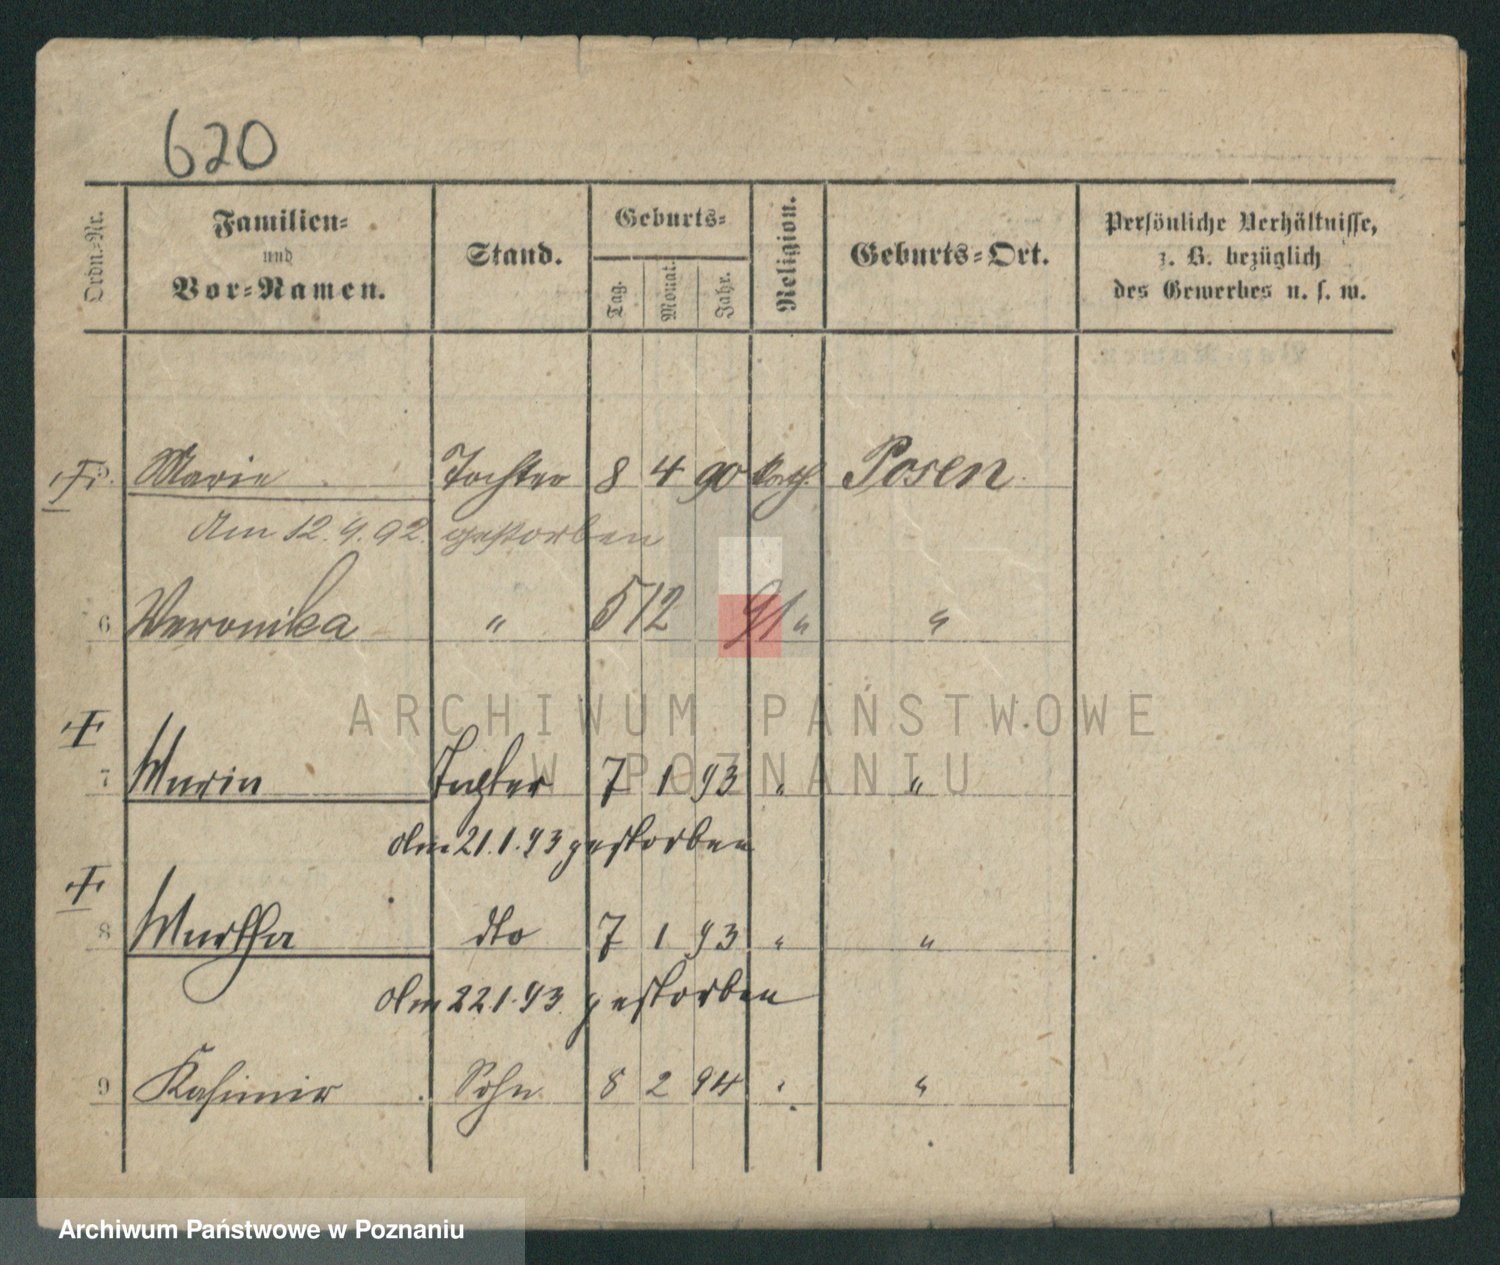 620
Ordn.-Nr. Familien- und Vor-Namen. Stand. Geburts- Tag. Monat. Jahr. Religion. Geburts-Ort. Persönliche Verhältnisse, z. B. bezüglich des Gewerbes u. s. w.
Marie Tochter 8 4 90 kath. Posen
Am 12.9.92. gestorben
6 Veronika " 5 12 91 " "
ARCHIWUM PAŃSTWOWE
W POZNANIU
7 Maria Tochter 7 1 93 " "
Am 21.1.93 gestorben
8 Martha dto 7 1 93 " "
Am 22 1.93. gestorben
9 Kasimir Sohn 8 2 94 " "
Archiwum Państwowe w Poznaniu